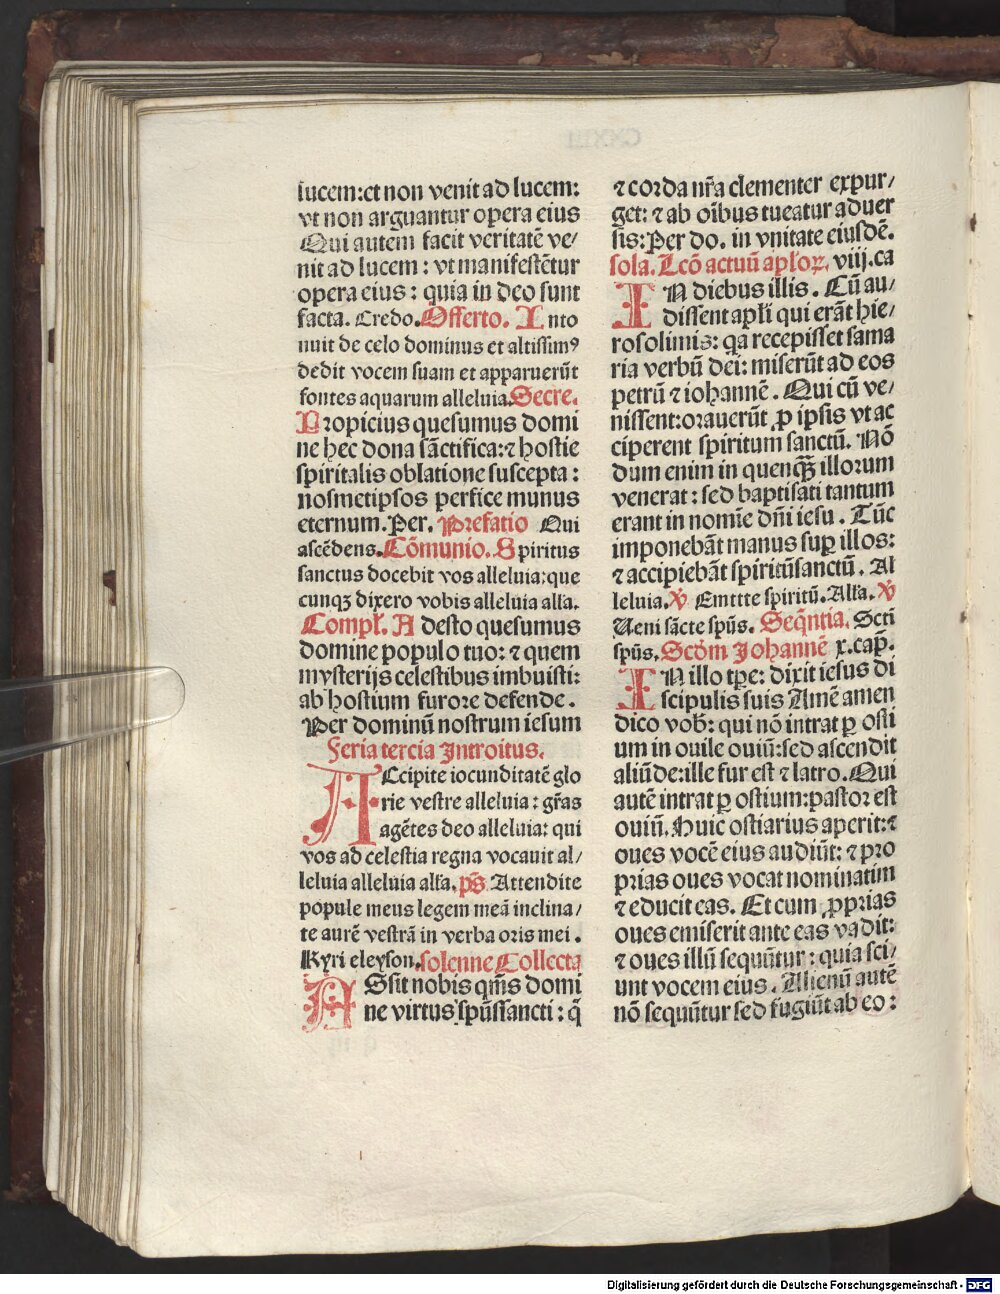 lucem:et non venit ad lucem:
vt non arguantur opera eius
Qui autem facit veritatē ve/
nit ad lucem: vt manifestētur
opera eius: quia in deo sunt
facta. Credo. Offerto. Into
nuit de celo dominus et altissimꝰ
dedit vocem suam et apparuerūt
fontes aquarum alleluia. Secre.
Propicius quesumus domi
ne hec dona sāctifica:⁊ hostie
spiritalis oblatione suscepta:
nosmetipsos perfice munus
eternum. Per. Prefatio Qui
ascēdens. Cōmunio. Spiritus
sanctus docebit vos alleluia:que
cunqꝫ dixero vobis alleluia alľa.
Compľ. Adesto quesumus
domine populo tuo: ⁊ quem
mysterijs celestibus imbuisti:
ab hostium furore defende.
Per dominū nostrum iesum
Feria tercia Introitus.
ACcipite iocunditatē glo
rie vestre alleluia: gr̄as
agētes deo alleluia: qui
vos ad celestia regna vocauit al/
leluia alleluia alľa. ps̄ Attendite
popule meus legem meā inclina/
te aurē vestrā in verba oris mei.
Kyri eleyson. solenne Collecta
ASsit nobis qm̄s domi
ne virtus spūssancti: q̄
⁊ corda nr̄a clementer expur/
get: ⁊ ab oībus tueatur aduer
sis: Per do. in vnitate eiusdē.
sola. Lcō actuū apľoꝝ. viij. ca
IN diebus illis. Cū au/
dissent apľi qui erāt hie/
rosolimis: qa recepisset sama
ria verbū dei: miserūt ad eos
petrū ⁊ iohannē. Qui cū ve/
nissent:orauerūt ꝓ ipsis vt ac
ciperent spiritum sanctū. Nō
dum enim in quenqꝫ illorum
venerat: sed baptisati tantum
erant in nomīe dn̄i iesu. Tūc
imponebāt manus suꝑ illos:
⁊ accipiebāt spiritūsanctū. Al
leluia. ℣ Emttte spiritū. Alľa. ℣
Ueni sācte spūs. Seqn̄tia. Scti
spūs. Scōm Johannē x. cap̄.
IN illo tp̄e: dixit iesus di
scipulis suis Amē amen
dico vob̄: qui nō intrat ꝑ osti
um in ouile ouiū:sed ascendit
aliūde:ille fur est ⁊ latro. Qui
autē intrat ꝑ ostium:pastor est
ouiū. Huic ostiarius aperit:⁊
oues vocē eius audiūt: ⁊ pro
prias oues vocat nominatim
⁊ educit eas. Et cum ꝓprias
oues emiserit ante eas vadit:
⁊ oues illū sequūtur: quia sci/
unt vocem eius. Alienū autē
nō sequūtur sed fugiūt ab eo:
Digitalisierung gefördert durch die Deutsche Forschungsgemeinschaft - DFG